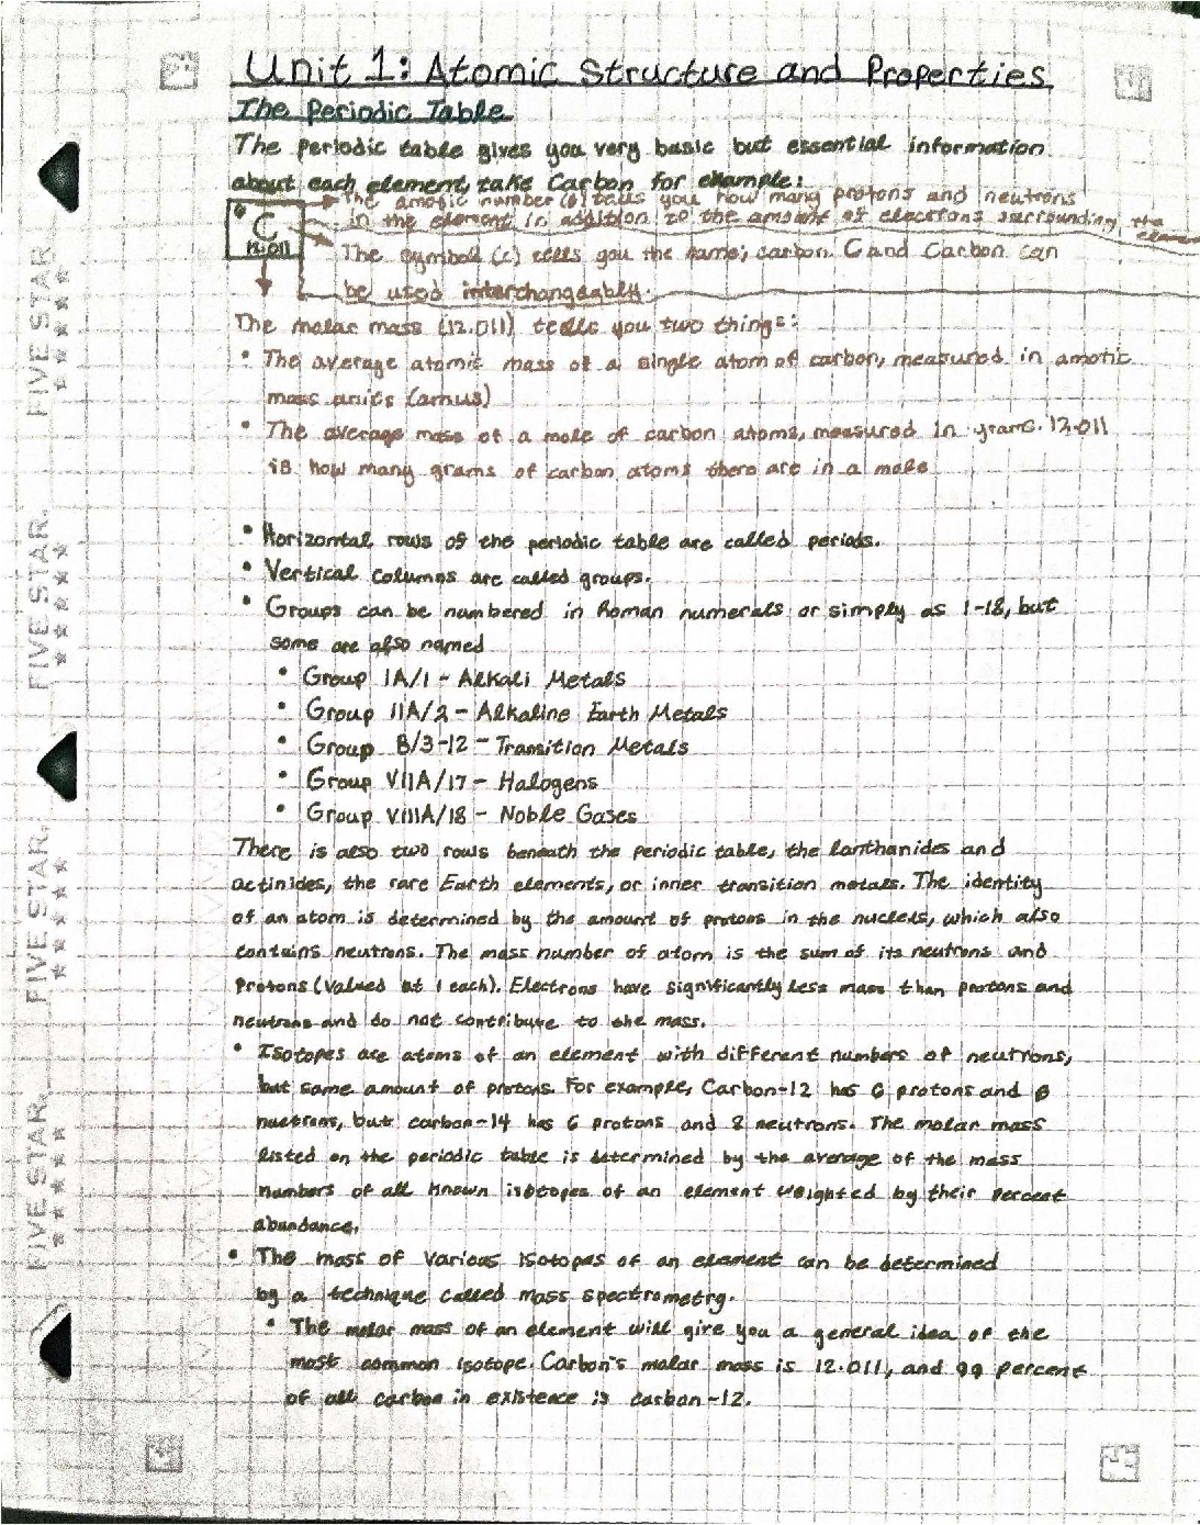 Unit 1: Atomic Structure and Properties
The Periodic Table
The periodic table gives you very basic but essential information
about each element, take Carbon for example:
6
C
12.011
The amotic number (6) tells you how many protons and neutrons
in the element in addition to the amount of electrons surrounding the element
The symbol (c) tells you the name; carbon. C and Carbon can
be used interchangeably.
The molar mass (12.011) tells you two things:
• The average atomic mass of a single atom of carbon, measured in amotic
mass units (amus)
• The average mass of a mole of carbon atoms, measured in grams. 12.011
is how many grams of carbon atoms there are in a mole
• Horizontal rows of the periodic table are called periods.
• Vertical columns are called groups.
• Groups can be numbered in Roman numerals or simply as 1-18, but
some are also named
• Group IA/1 - Alkali Metals
• Group IIA/2 - Alkaline Earth Metals
• Group B/3-12 - Transition Metals
• Group VIIA/17 - Halogens
• Group VIIIA/18 - Noble Gases
There is also two rows beneath the periodic table, the lanthanides and
actinides, the rare Earth elements, or inner transition metals. The identity
of an atom is determined by the amount of protons in the nucleus, which also
contains neutrons. The mass number of atom is the sum of its neutrons and
protons (valued at 1 each). Electrons have significantly less mass than protons and
neutrons and do not contribute to the mass.
• Isotopes are atoms of an element with different numbers of neutrons,
but same amount of protons. For example, Carbon-12 has 6 protons and 6
nuetrons, but carbon-14 has 6 protons and 8 neutrons. The molar mass
listed on the periodic table is determined by the average of the mass
numbers of all known isotopes of an element weighted by their percent
abundance.
• The mass of various isotopes of an element can be determined
by a technique called mass spectrometry.
• The molar mass of an element will give you a general idea of the
most common isotope. Carbon's molar mass is 12.011, and 99 percent
of all carbon in existence is carbon-12.
FIVE STAR.
FIVE STAR.
FIVE STAR.
FIVE STAR.